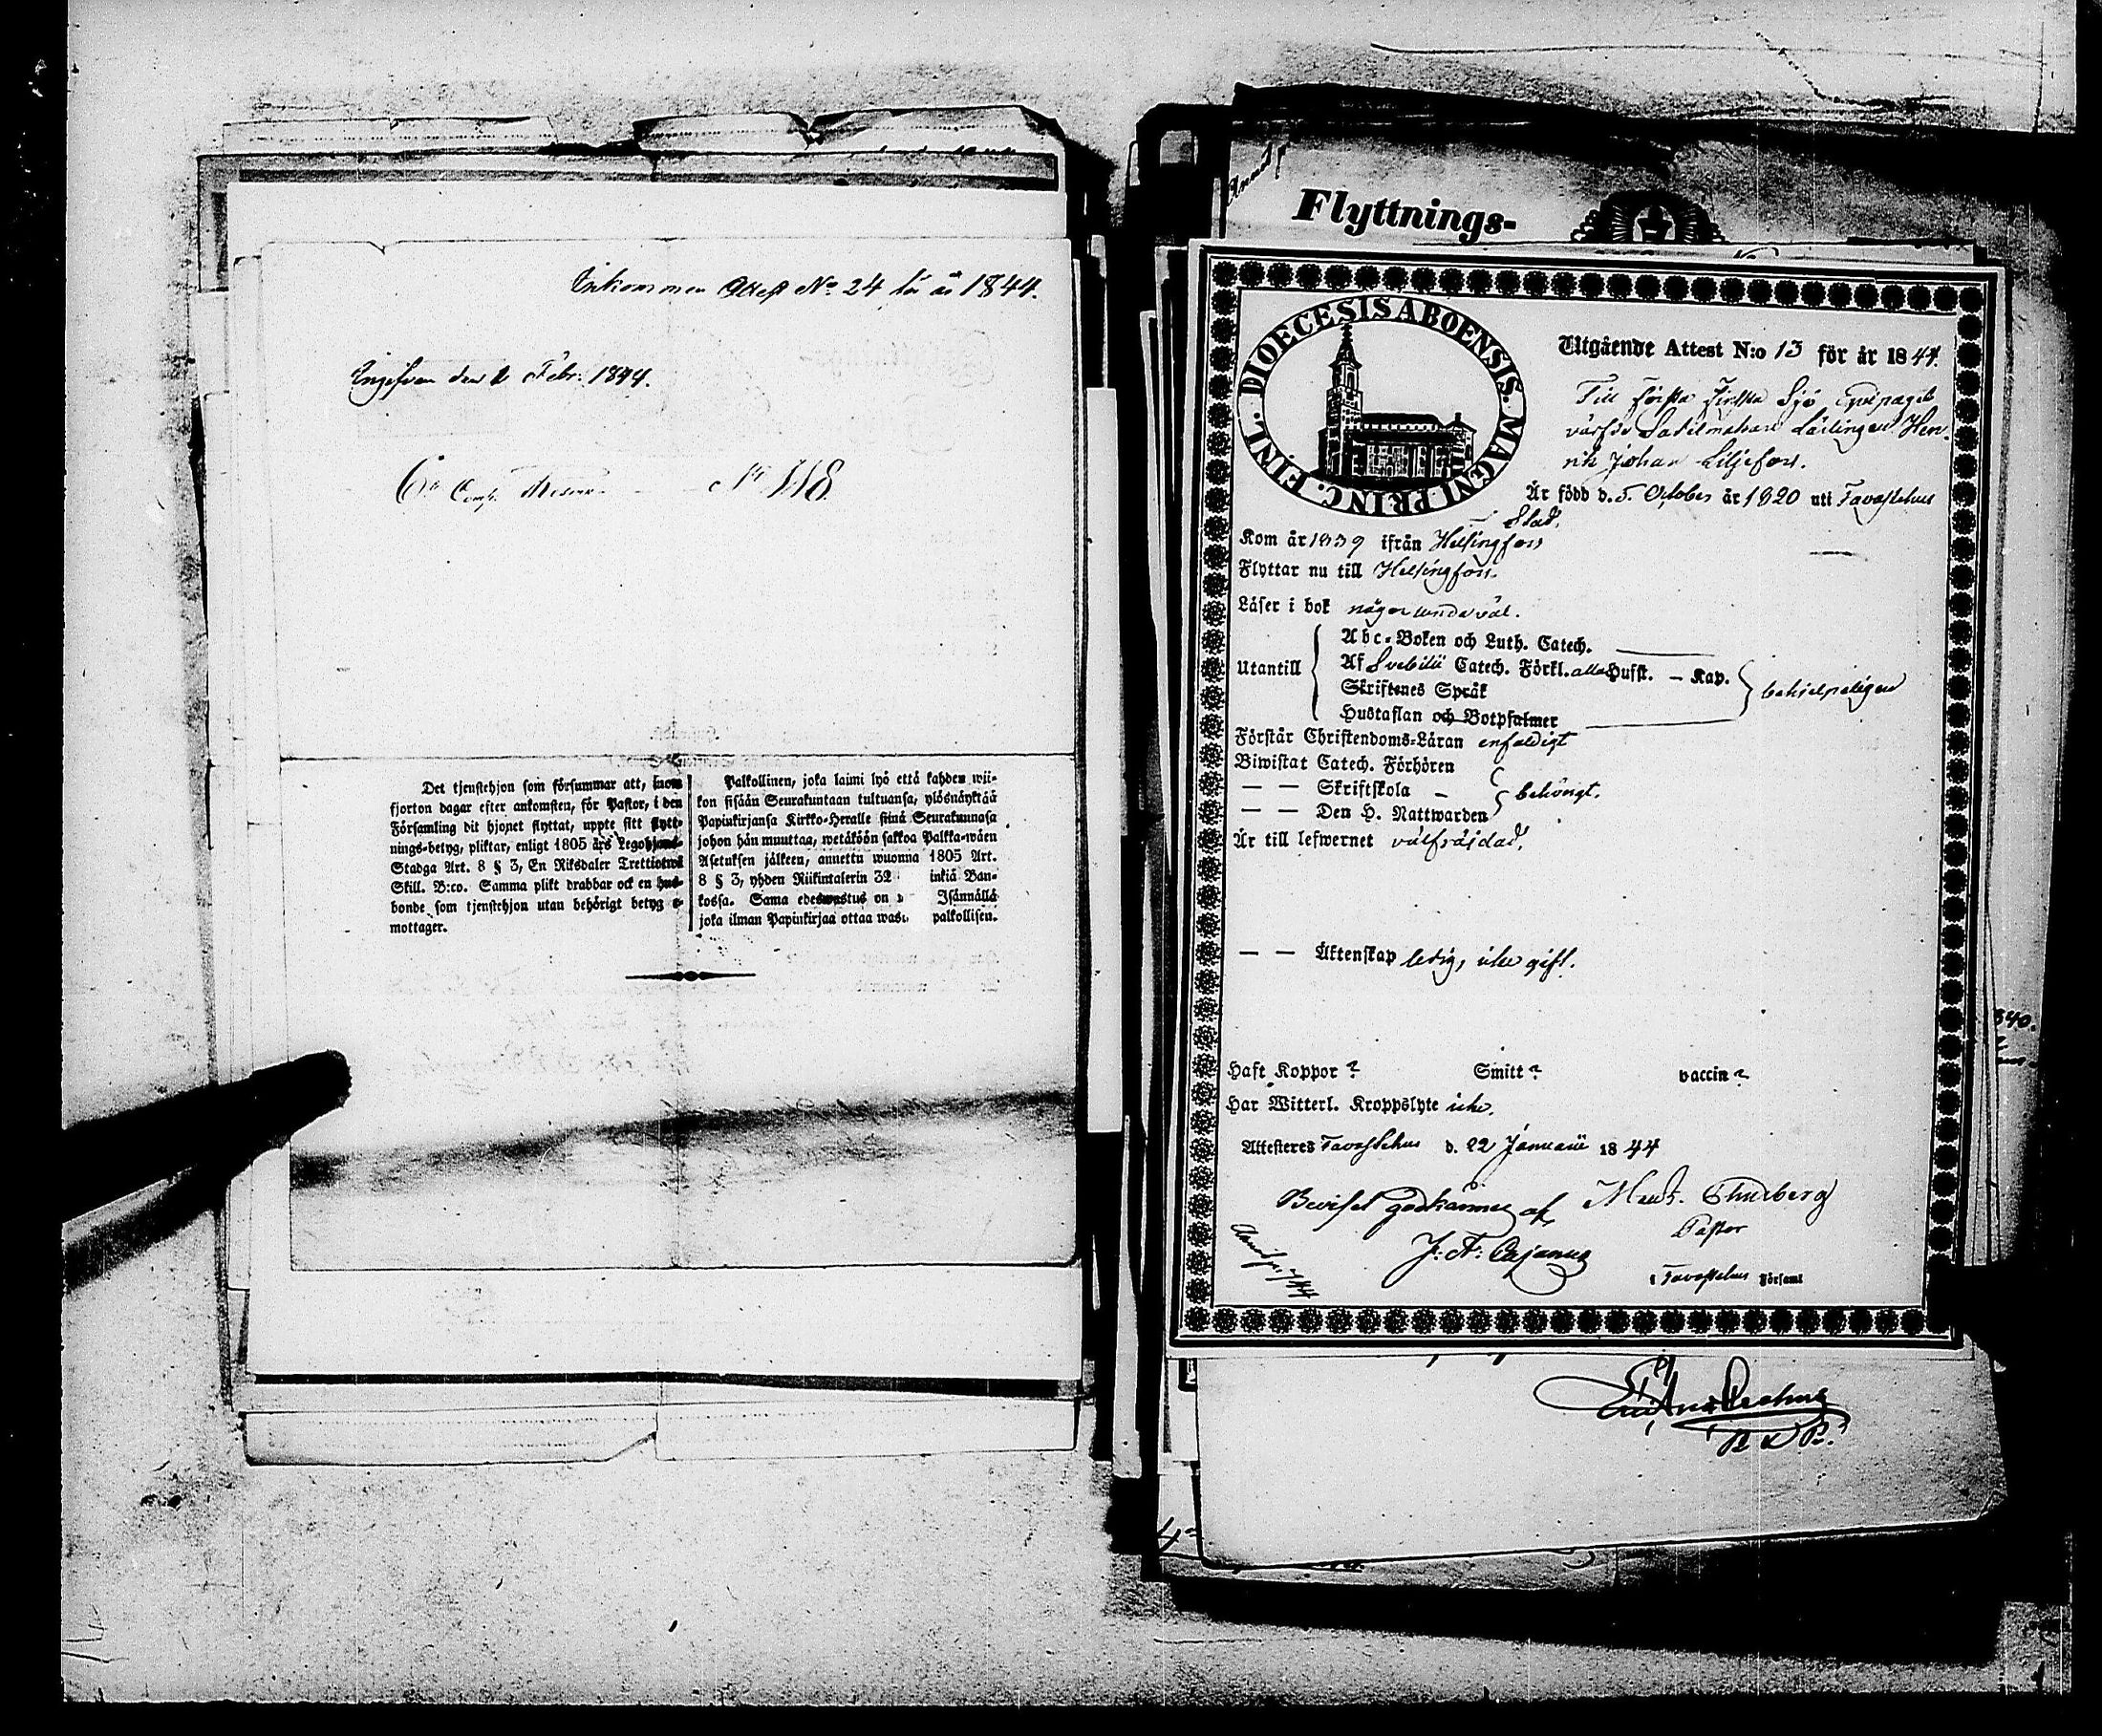 Inkommen Attest No 24 för år 1844.
Ingifven den 2 Febr. 1844.
6te Comp. No 118
Det tjenstehjon som försummar att, inom
fjorton dagar efter ankomsten, för Pastor, i den
Församling dit hjonet flyttat, uppte sitt flytt-
nings-betyg, pliktar, enligt 1805 års Legohjons-
Stadga Art. 8 § 3, En Riksdaler Trettiotwå
Skill. B:co. Samma plikt drabbar ock en hus-
bonde som tjenstehjon utan behörigt betyg e-
mottager.
Palkollinen, joka laimi lyö että kahden wii-
kon sisään Seurakuntaan tultuansa, ylösnäyttää
Papinkirjansa Kirkko-Heralle siinä Seurakunnasa
johon hän muuttaa, wetäköön sakkoa Palkka-wäen
Asetuksen jälkeen, annettu wuonna 1805 Art.
8 § 3, yhden Riikintalerin 32 inkiä Ban-
kossa. Sama edeswastus on Isännällä
joka ilman Papinkirjaa ottaa wast palkollisen.
Flyttnings-
DIOECESIS ABOENSIS. MAGNI PRINC. FINL.
Utgående Attest N:o 13 för år 1844.
Till Första Finska Sjö Equipaget
värfde Sadelmakare Lärlingen Hen-
rik Johan Liljefors.
Är född d. 5 October år 1820 uti Tavastehus
Stad.
Kom år 1839 ifrån Helsingfors
Flyttar nu till Helsingfors.
Läser i bok någorlunda väl.
Utantill
Abc-Boken och Luth. Catech.
Af Svebilii Catech. Förkl. alla Hufst. — Kap.
Skriftenes Språk
Hustaflan och Botpsalmer
behjelpeligen
Förstår Christendoms-Läran enfaldigt
Biwistat Catech. Förhören
— — Skriftskola —
— — Den H. Nattwarden
behörigt.
Är till lefwernet välfräjdad.
— — Äktenskap ledig, icke gift.
Haft Koppor? Smitt? vaccin?
Har Witterl. Kroppslyte icke.
Attesteres Tavastehus d. 22 Januarii 1844
Beviset godkännes af
J: A: Cajanus
Pastor
i Tavastehus Församl
840.